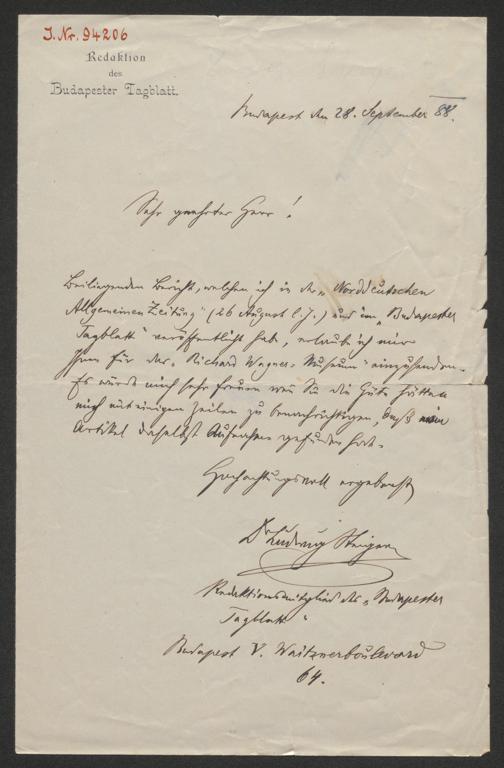 J. Nr. 94206
Redaktion
des
Budapester Tagblatt.
Budapest den 28. September 88.
Sehr geehrter Herr!
Beiliegenden Bericht, welchen ich in der „Norddeutschen
Allgemeinen Zeitung" (26 August l. J.) und im „Budapester
Tagblatt" veröffentlicht habe, erlaube ich mir
Ihnen für das „Richard Wagner-Museum" einzusenden.
Es würde mich sehr freuen wenn Sie die Güte hätten
mich mit einigen Zeilen zu benachrichtigen, daß mein
Artikel daselbst Aufnahme gefunden hat.
Hochachtungsvoll ergebenst
Dr Ludwig
Redaktionsmitglied des „Budapester
Tagblatt"
Budapest V. Waitznerboulevard
64.